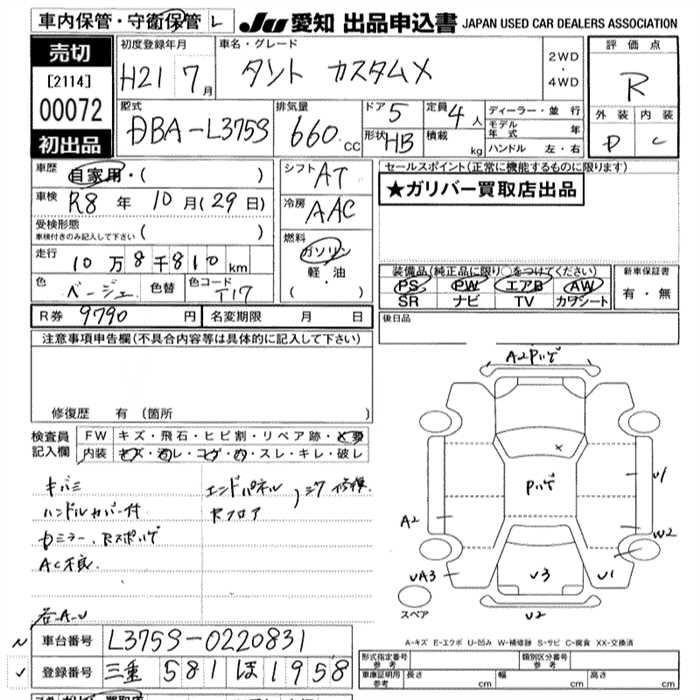 車内保管・守衛保管 L
JU 愛知 出品申込書 JAPAN USED CAR DEALERS ASSOCIATION
売切
[2114]
00072
初出品
初度登録年月 H21 7月
車名・グレード タント カスタムX
2WD・4WD
評価点 R
外装 D 内装 C
型式 DBA-L375S
排気量 660.cc
ドア 5
形状 HB
定員 4人
積載 kg
ディーラー・並行
モデル年式 年
ハンドル 左・右
車歴 自家用・( )
車検 R8年 10月(29日)
受検形態
車検付きのみ記入して下さい ( )
走行 10万8千810km
色 ベージュ 色替 色コード T17
シフト AT
冷房 AAC
燃料 ガソリン
軽・油
( )
セールスポイント(正常に機能するものに限ります)
★ガリバー買取店出品
装備品(純正品に限り○をつけてください)
PS PW エアB AW
SR ナビ TV カワシート
新車保証書
有・無
R券 9790円 名変期限 月 日
後日品
注意事項申告欄(不具合内容等は具体的に記入して下さい)
修復歴 有 (箇所 )
検査員記入欄
FW キズ・飛石・ヒビ割・リペア跡・交要
内装 キズ・汚レ・コゲ・穴・スレ・キレ・破レ
キバミ
ハンドルカバー付
エンドパネル
Rフロア
AC不良
A2 Pハゲ
Pハゲ
A2
U1
W2
UA3
U3
U1
U2
スペア
A-キズ E-エクボ U-凹み W-補修跡 S-サビ C-腐食 XX-交換済
車台番号 L375S-0220831
登録番号 三重 581 ほ 1958
形式指定番号 参考
類別区分番号 参考
車庫証明用 参考 長さ cm 幅 cm 高さ cm